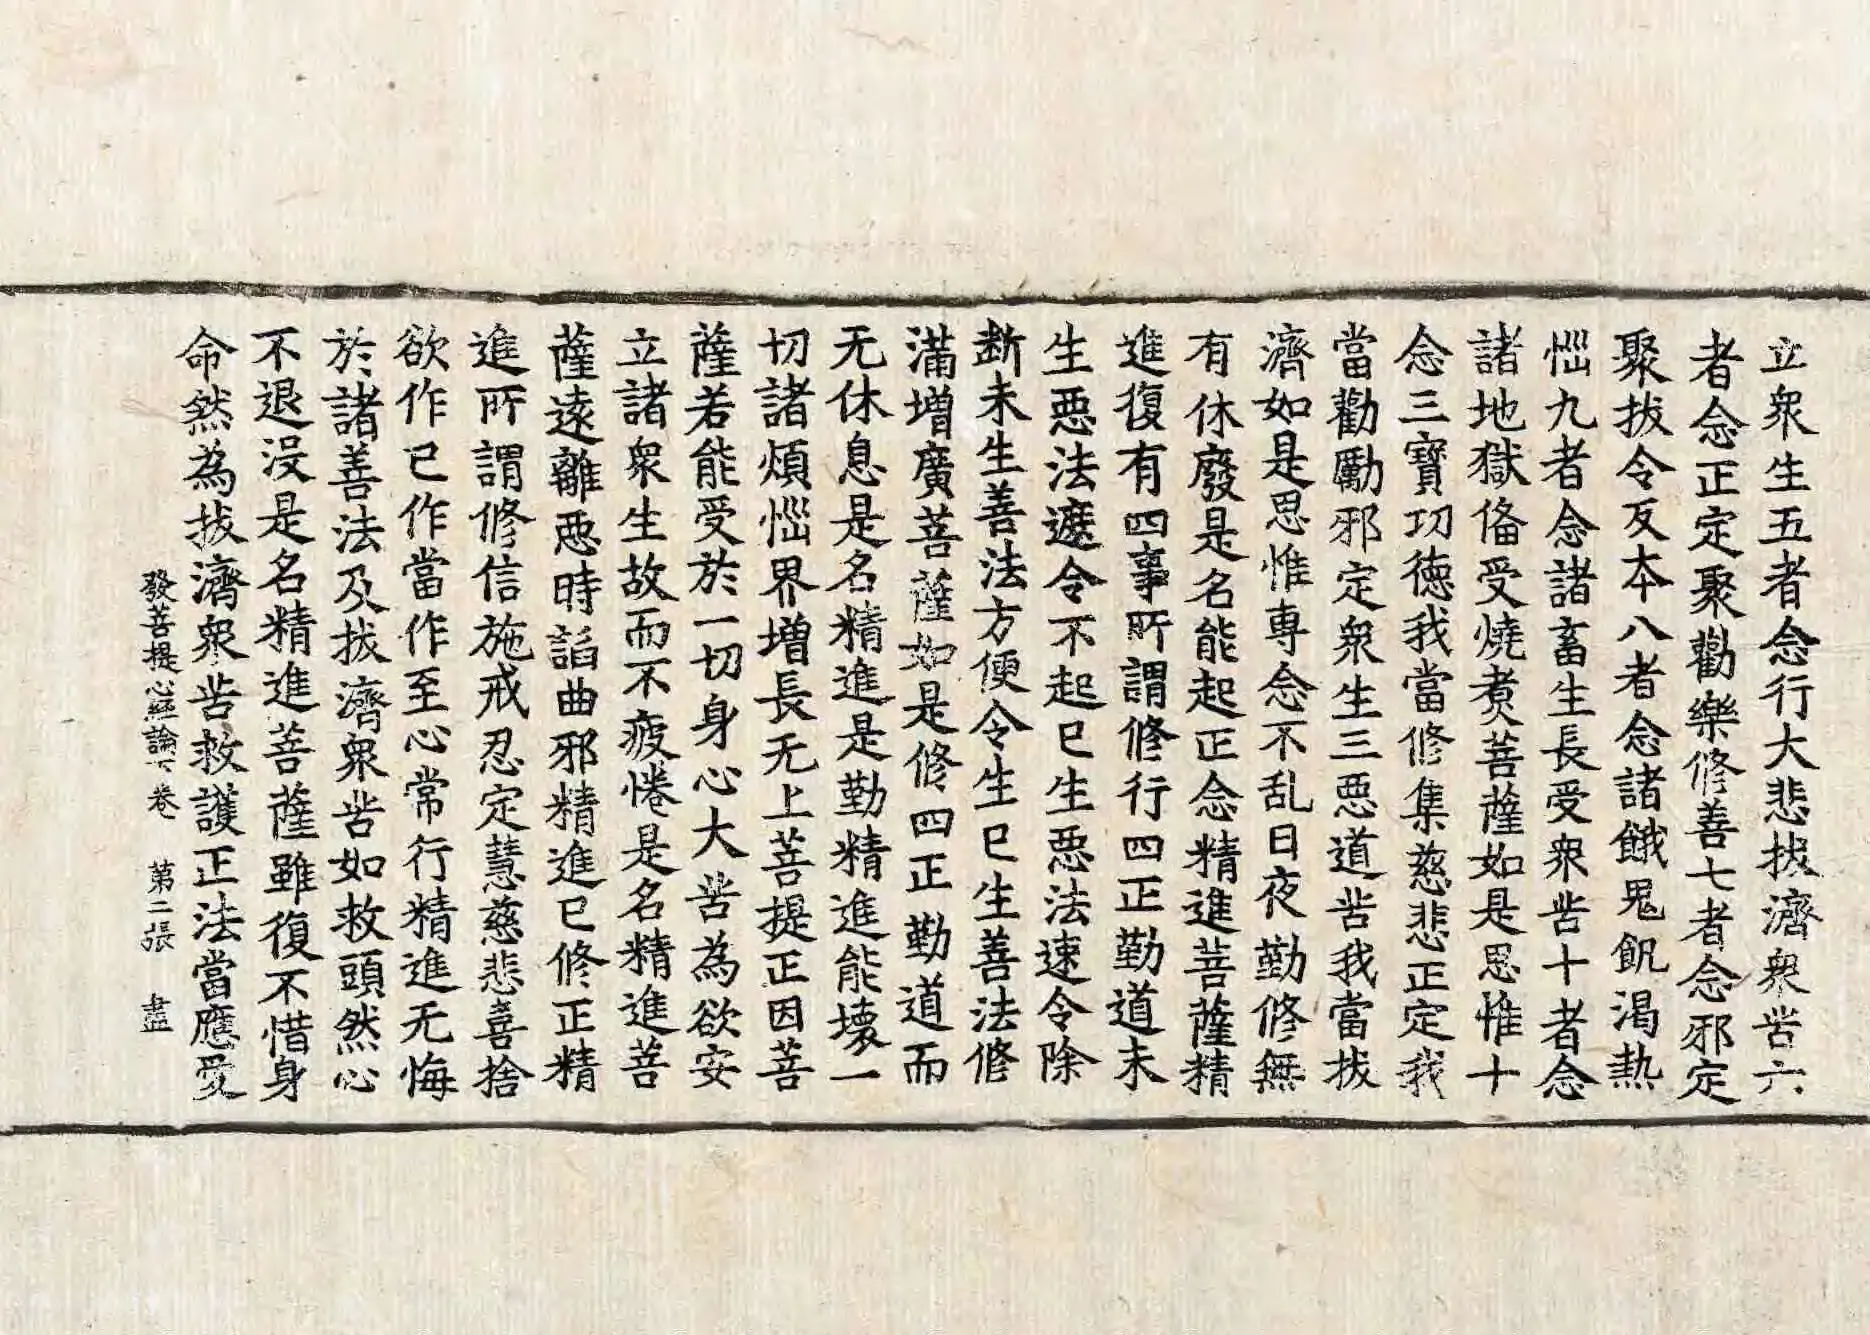 立衆生五者念行大悲拔濟衆苦六
者念正定聚勸樂修善七者念邪定
聚拔令反本八者念諸餓鬼飢渴熱
惱九者念諸畜生長受衆苦十者念
諸地獄俻受燒煑菩薩如是思惟十
念三寶功德我當修集慈悲正定我
當勸勵邪定衆生三惡道苦我當拔
濟如是思惟專念不乱日夜勤修無
有休廢是名能起正念精進菩薩精
進復有四事所謂修行四正勤道未
生惡法遮令不起已生惡法速令除
断未生善法方便令生已生善法修
滿增廣菩薩如是修四正勤道而
无休息是名精進是勤精進能壞一
切諸煩惱界增長无上菩提正因菩
薩若能受於一切身心大苦為欲安
立諸衆生故而不疲惓是名精進菩
薩遠離惡時諂曲邪精進已修正精
進所謂修信施戒忍定慧慈悲喜捨
欲作已作當作至心常行精進无悔
於諸善法及拔濟衆苦如救頭然心
不退没是名精進菩薩雖復不惜身
命然為拔濟衆苦救護正法當應愛
發菩提心經論下卷 第二張 盡